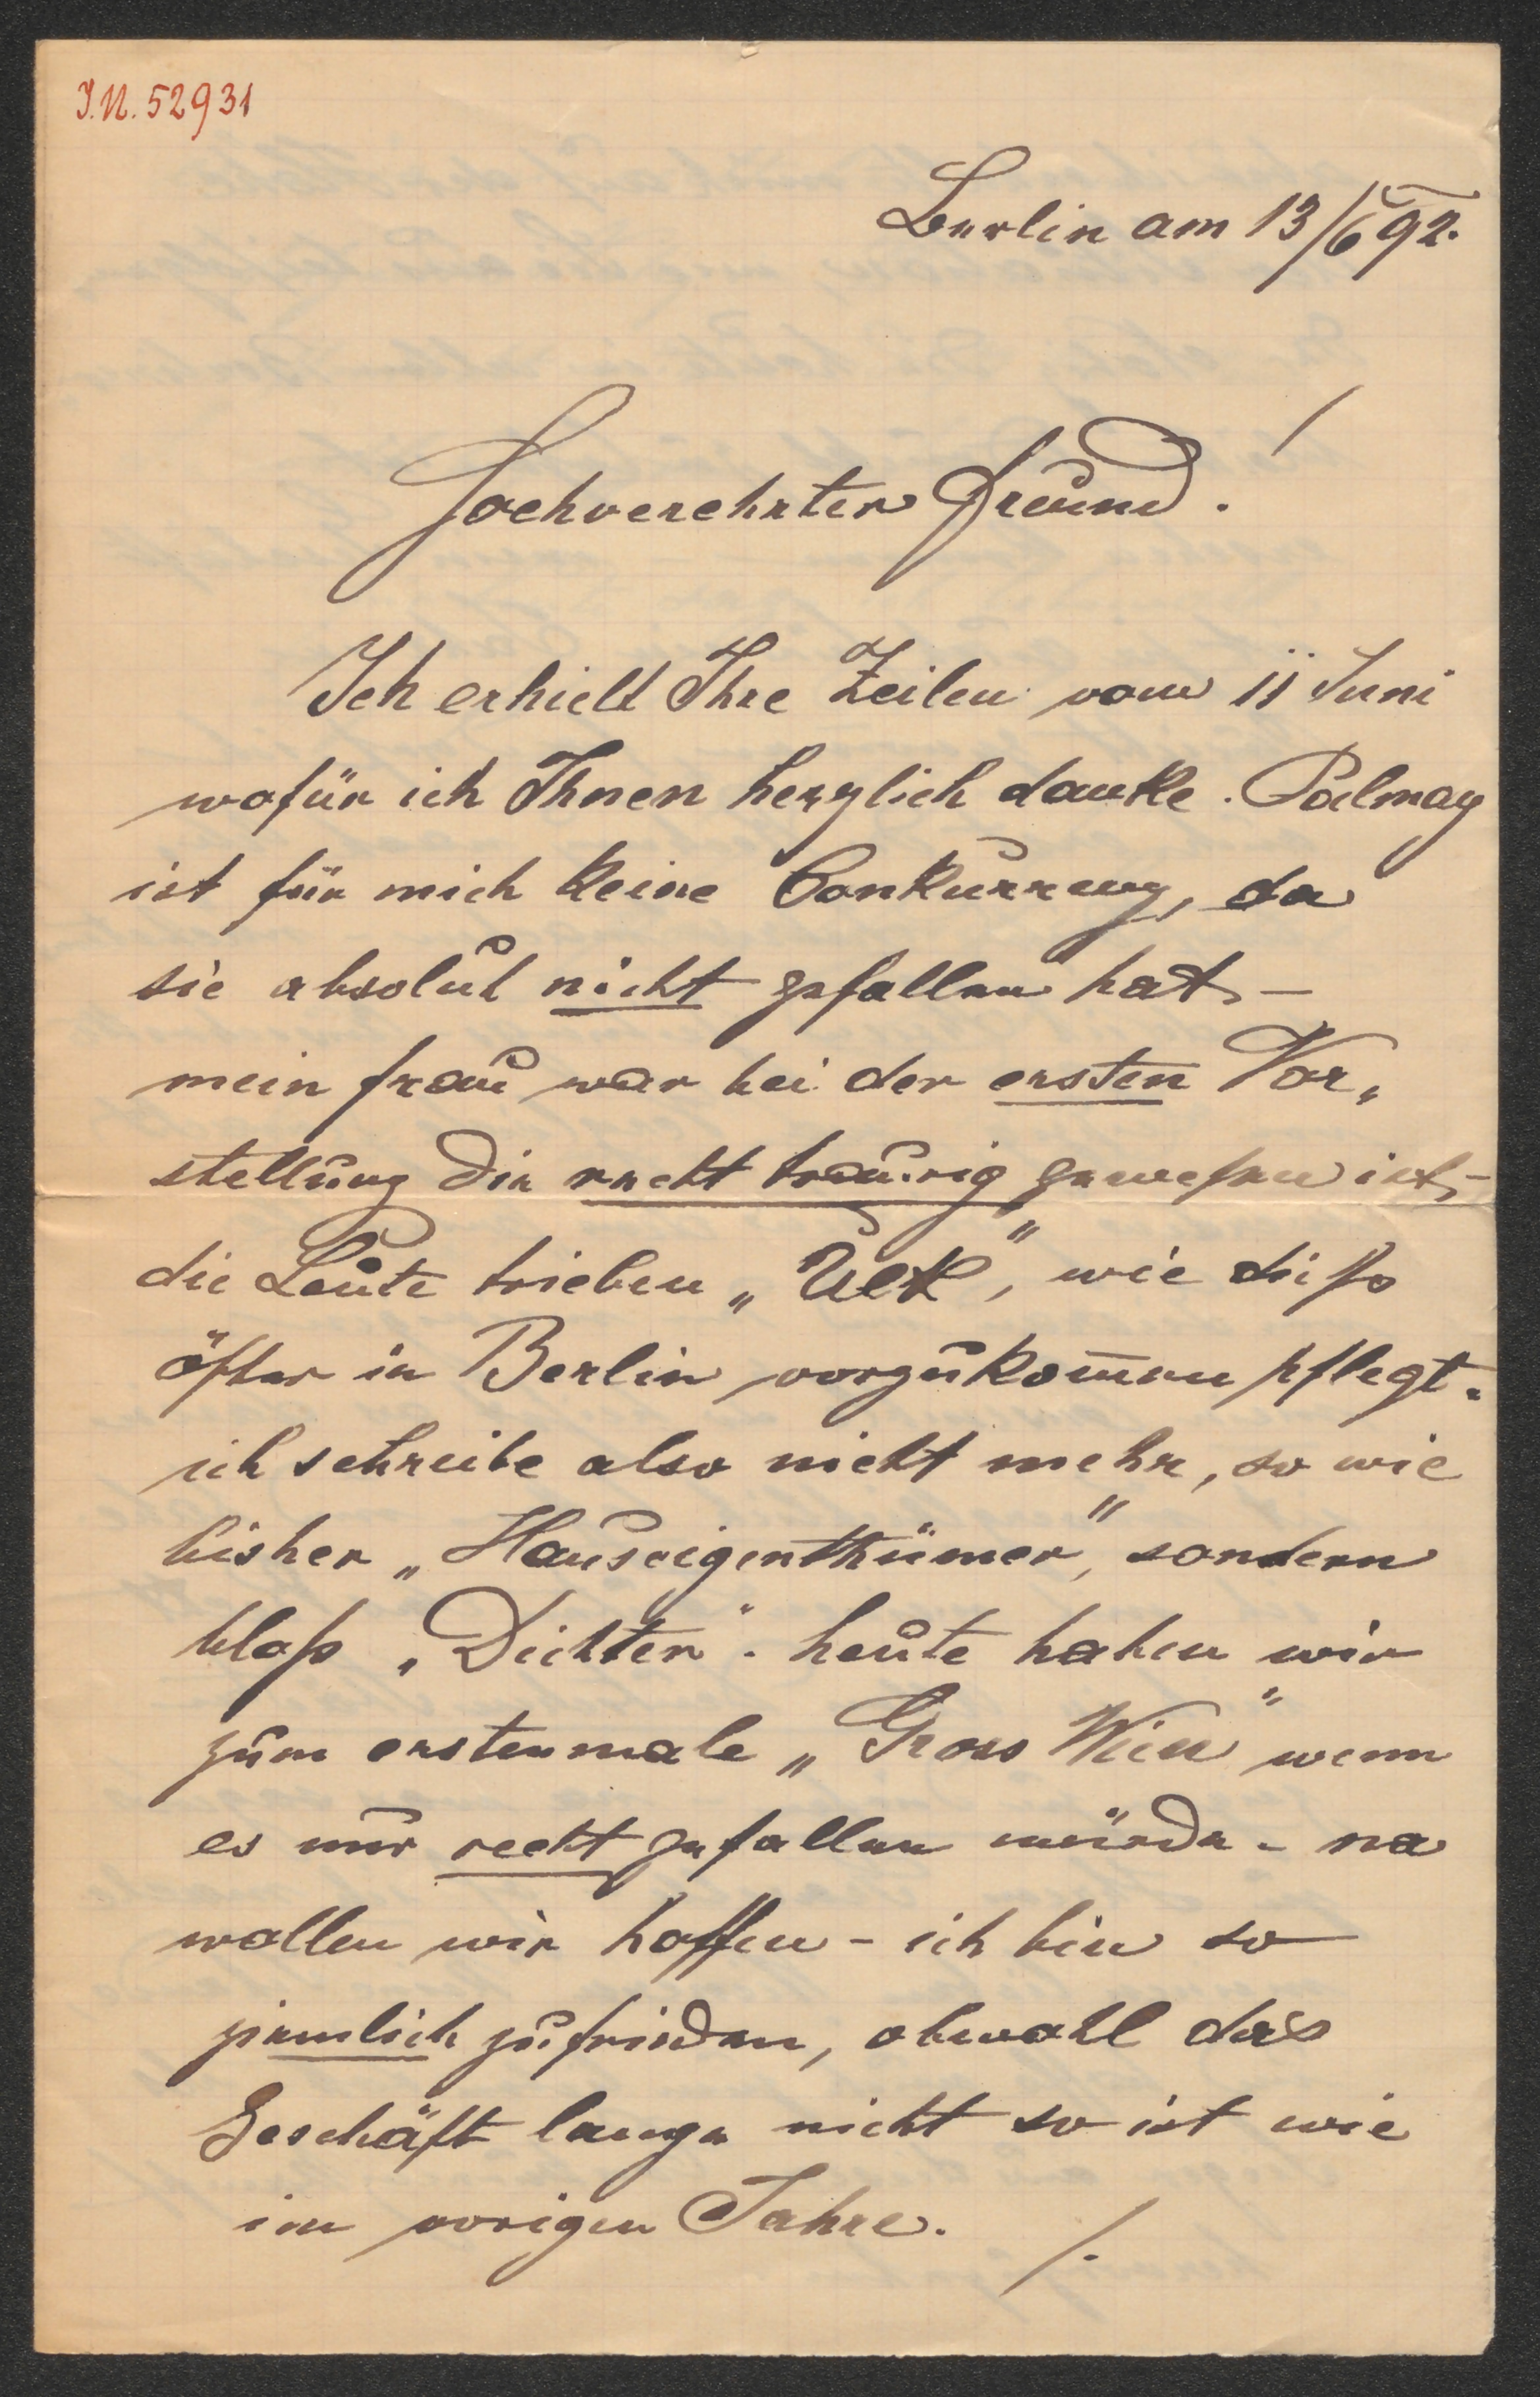 I.N. 52931
Berlin am 13/6 92.
Hochverehrter Freund!
Ich erhielt Ihre Zeilen vom 11 Juni
wofür ich Ihnen herzlich danke. Palmay
ist für mich keine Conkurrenz, da
sie absolut nicht gefallen hat, –
mein Frau war bei der ersten Vor„
stellung die recht traurig gewesen ist, –
die Leute trieben „Ulk", wie dieß
öfter in Berlin vorzukom̅en pflegt.
ich schreibe also nicht mehr, so wie
bisher „Hauseigenthümer", sondern
bloß „Dichter". heute haben wir
zum erstenmale „Gross Wien" wenn
es nur recht gefallen würde – na
wollen wir hoffen – ich bin so
ziemlich zufrieden, obwohl das
Geschäft lange nicht so ist wie
im vorigen Jahre. /.